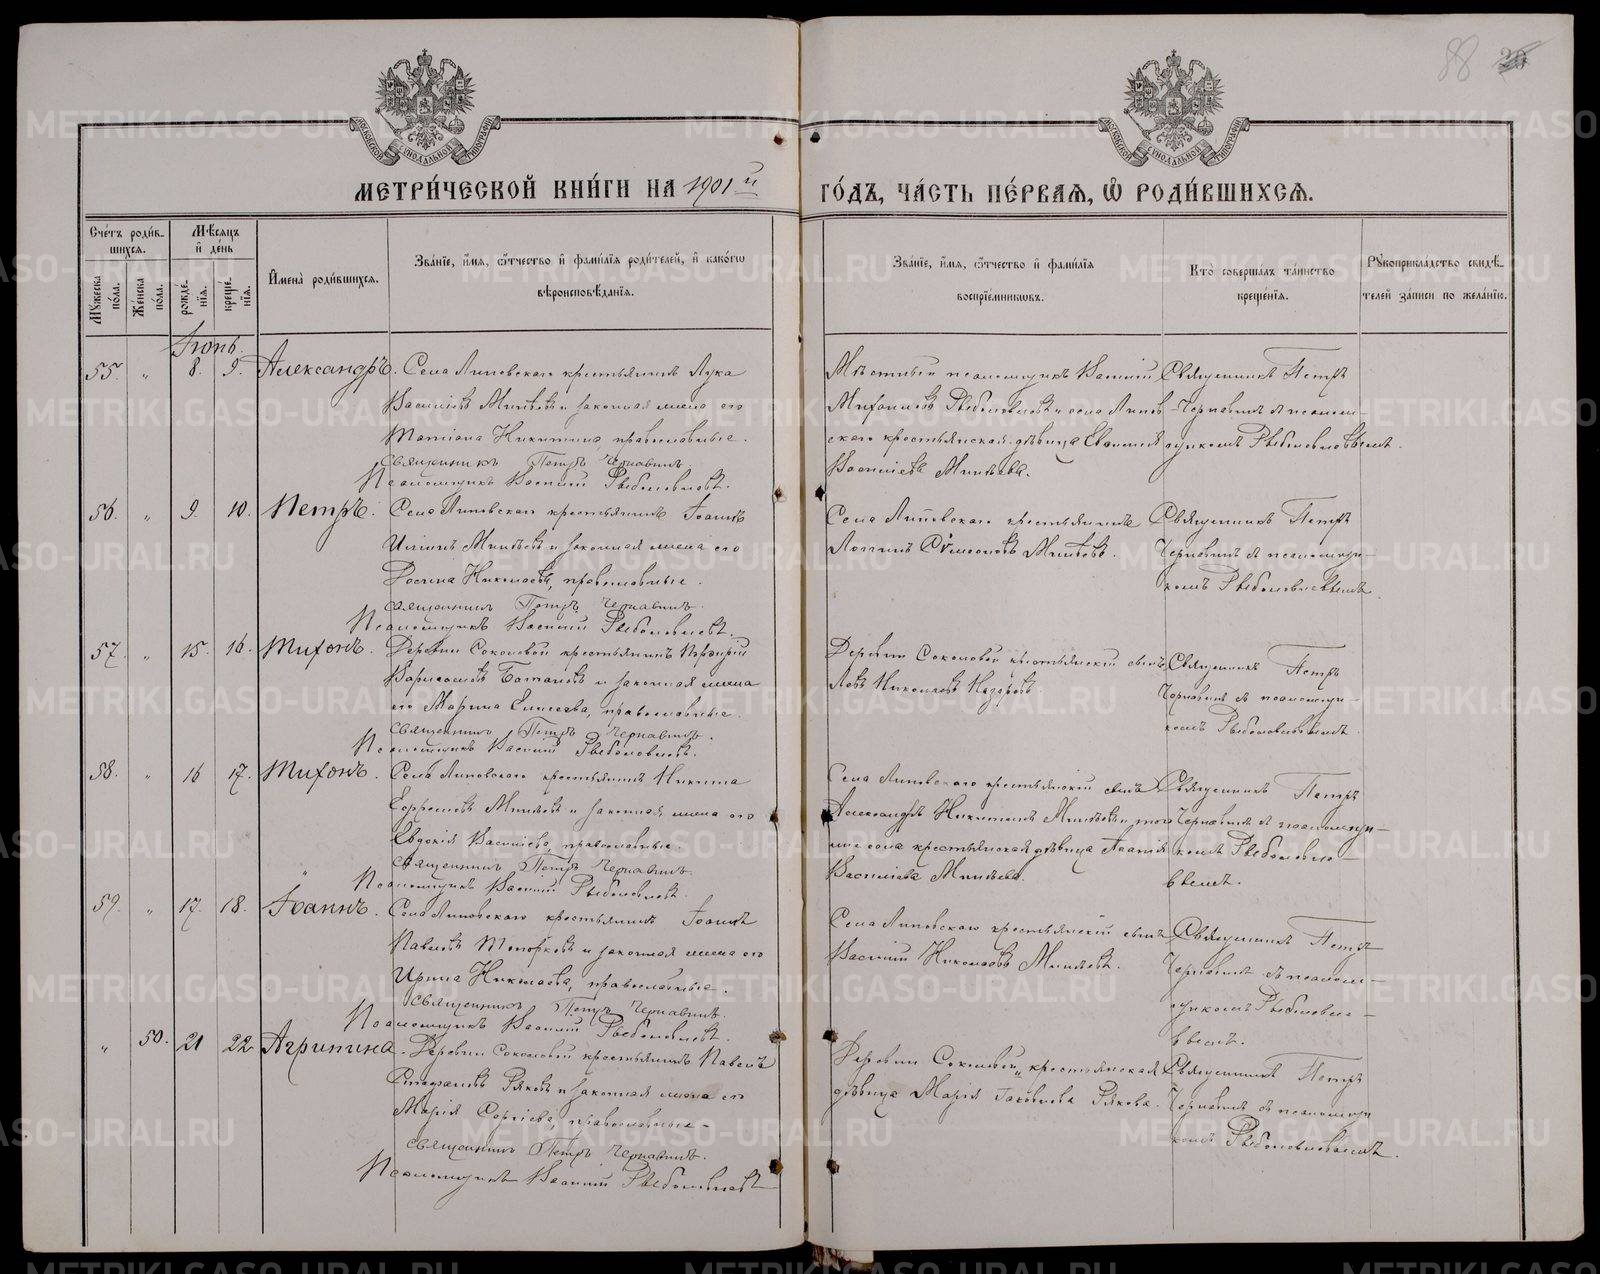 88
МЕТРИ́ЧЕСКОЙ КНИ́ГИ НА 1901 й
ГО́ДЪ, ЧА́СТЬ ПЕ́РВАѦ, Ѡ РОДИ́ВШИХСѦ.
Сче́тъ роди́в-
шихсѧ.
Мѣсѧцъ
и де́нь
Мꙋжеска
по́ла.
Же́нска
по́ла.
рожде́-
нїѧ.
креще́-
нїѧ.
Имена̀ роди́вшихсѧ.
Зва́нїе, и́мѧ, ѻ́тчество и фами́лїѧ роди́телей, и како́гѡ
вѣроисповѣ́данїѧ.
Зва́нїе, и́мѧ, ѻ́тчество и фами́лїѧ
воспрїе́мникѡвъ.
Кто̀ соверша́лъ та́инство
креще́нїѧ.
Рꙋкоприкла́дство свидѣ́-
телей за́писи по жела́нїю.
Іюнь.
55. „ 8. 9. Александръ. Села Липовского крестьянинъ Лука
Васильевъ Минѣевъ и законная жена его
Татiана Никитина, православные.
Священникъ Петръ Чернавинъ.
Псаломщикъ Василий Рыболовлевъ.
Мѣстный псаломщикъ Василий
Михаиловъ Рыболовлевъ и села Липов-
ского крестьянская дѣвица
Васильева Минѣева.
Священникъ Петръ
Чернавинъ съ псалом-
щикомъ Рыболовлевымъ.
56. „ 9. 10. Петръ. Села Липовского крестьянинъ Іоаннъ
Минѣевъ и законная жена его
Николаева, православные.
Священникъ Петръ Чернавинъ.
Псаломщикъ Василий Рыболовлевъ.
Села Липовского крестьянинъ
Логинъ Симеоновъ Минѣевъ.
Священникъ Петръ
Чернавинъ съ псаломщи-
комъ Рыболовлевымъ.
57. „ 15. 16. Тихонъ. Деревни Соколовой крестьянинъ
и законная жена
его Марина Елисеева, православные.
Священникъ Петръ Чернавинъ.
Псаломщикъ Василий Рыболовлевъ.
Деревни Соколовой крестьянский сынъ
Левъ Николаевъ Назаровъ.
Священникъ Петръ
Чернавинъ съ псаломщи-
комъ Рыболовлевымъ.
58. „ 16 17. Тихонъ. Села Липовского крестьянинъ Никита
Ефремовъ Минѣевъ и законная жена его
Евдокия Васильева, православные.
Священникъ Петръ Чернавинъ.
Псаломщикъ Василий Рыболовлевъ.
Села Липовского крестьянский сынъ
Александръ Никитинъ Минѣевъ и того
же села крестьянская дѣвица
Васильева Минѣева.
Священникъ Петръ
Чернавинъ съ псаломщи-
комъ Рыболовле-
вымъ.
59. „ 17. 18. Іоаннъ. Села Липовского крестьянинъ Іоаннъ
Павловъ Топорковъ и законная жена его
Ирина Николаева, православные.
Священникъ Петръ Чернавинъ.
Псаломщикъ Василий Рыболовлевъ.
Села Липовского крестьянский сынъ
Василий Николаевъ Минѣевъ.
Священникъ Петръ
Чернавинъ съ псалом-
щикомъ Рыболовле-
вымъ.
„ 50. 21 22 Агрипина. Деревни Соколовой крестьянинъ Павелъ
Стефановъ Ряковъ и законная жена его
Марія Сергiева, православные.
Священникъ Петръ Чернавинъ.
Псаломщикъ Василий Рыболовлевъ
Деревни Соколовой крестьянская
дѣвица Марія Іаковлева Рякова.
Священникъ Петръ
Чернавинъ съ псаломщи-
комъ Рыболовлевымъ.
METRIKI.GASO-URAL.RU